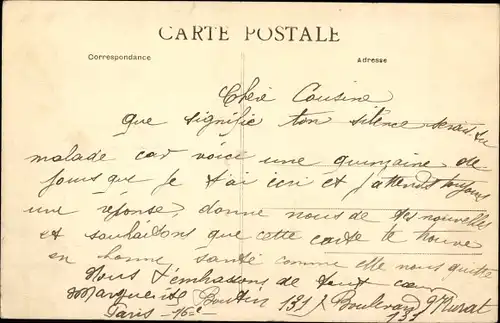 CARTE POSTALE
Correspondance
Adresse
Chere Cousine
que signifie ton silence serais tu
malade car voici une quinzaine de
jours que je t'ai écri et j'attends toujours
une réponse, donne nous de tes nouvelles
et souhaitons que cette carte te trouve
en bonne santé comme elle nous quitte
Nous t'embrassons de tout cœur
Marguerite Boutin 131 Boulevard Murat
Paris 16e 131